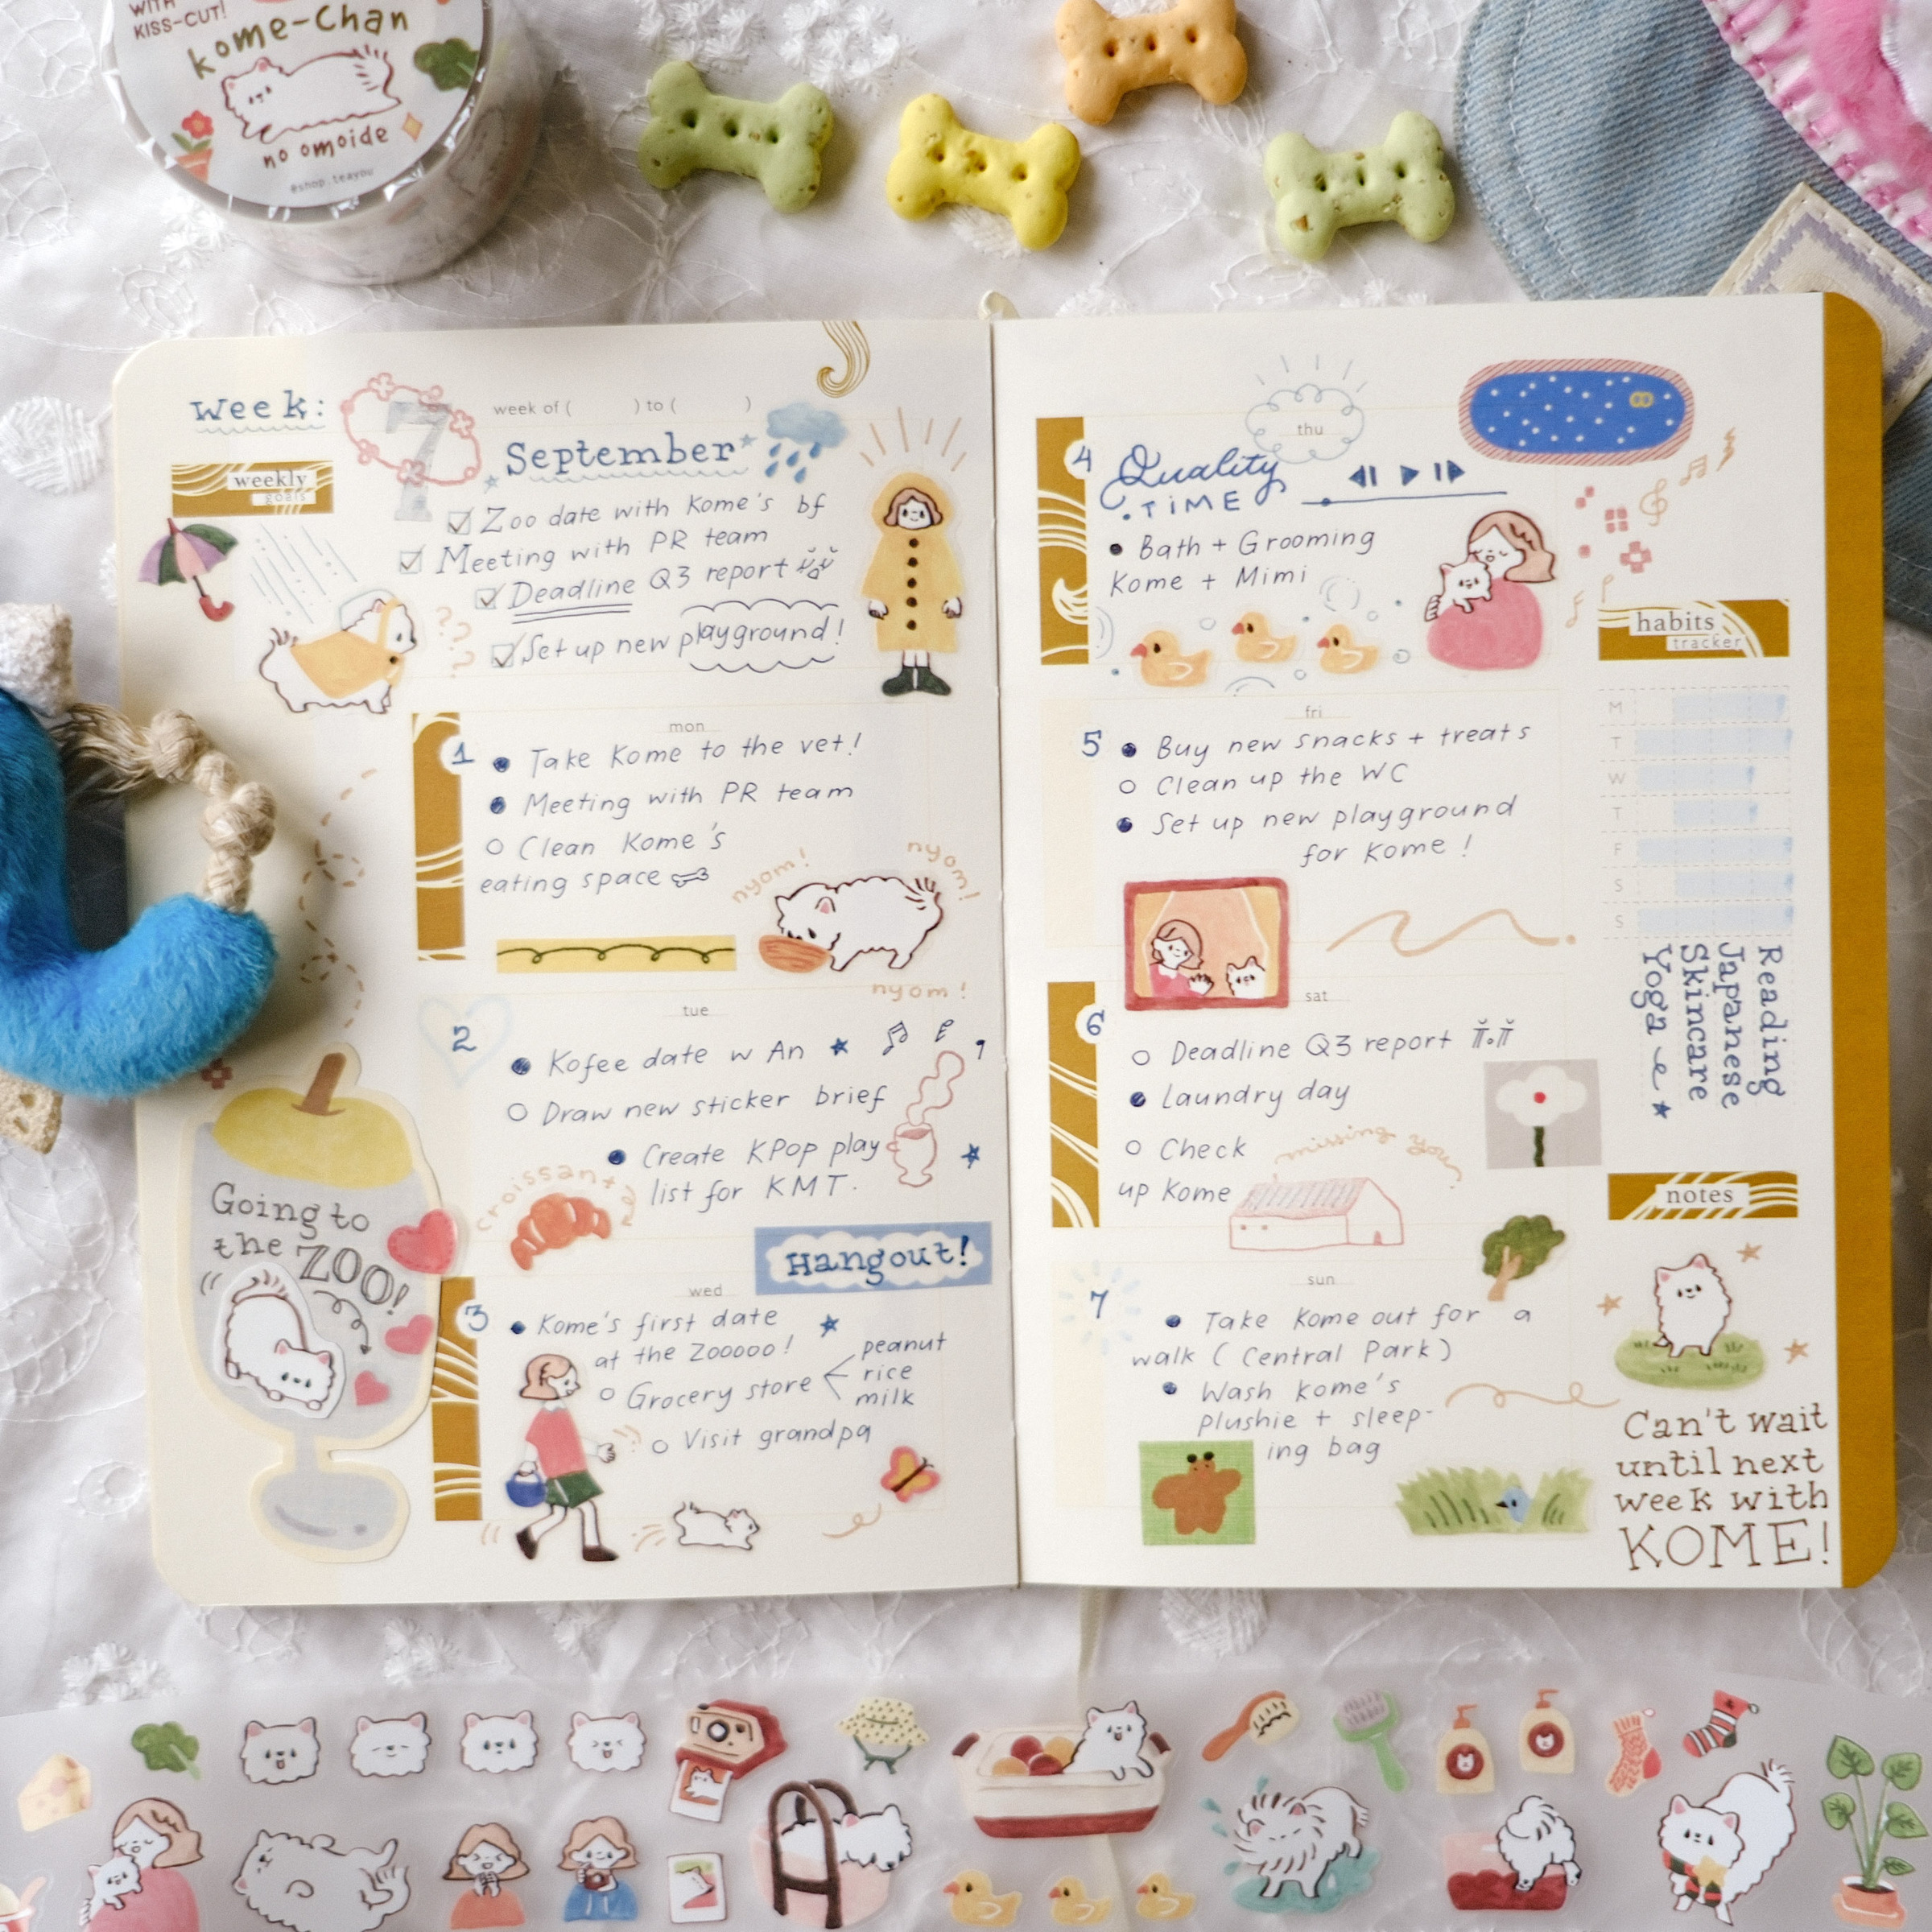 WITH
KISS-CUT!
kome-chan
no omoide
@shop.teayou
Week:
7
week of ( ) to ( )
September
weekly
goals
Zoo date with Kome's bf
Meeting with PR team
Deadline Q3 report
Set up new playground!
???
mon
1
Take Kome to the vet!
Meeting with PR team
Clean Kome's
eating space
nyom!
nyom!
nyom!
tue
2
Kofee date w An
Draw new sticker brief
Create KPop play
list for KMT.
croissant
Hangout!
Going to
the ZOO!
wed
3
Kome's first date
at the Zooooo!
Grocery store
peanut
rice
milk
Visit grandpa
thu
4
Quality
TIME
Bath + Grooming
Kome + Mimi
fri
5
Buy new snacks + treats
Clean up the WC
Set up new playground
for Kome!
sat
6
Deadline Q3 report
Laundry day
Check
up Kome
missing you
sun
7
Take Kome out for a
walk (Central Park)
Wash Kome's
plushie + sleep-
ing bag
habits
tracker
M
T
W
T
F
S
S
Reading
Japanese
Skincare
Yoga
notes
Can't wait
until next
week with
KOME!